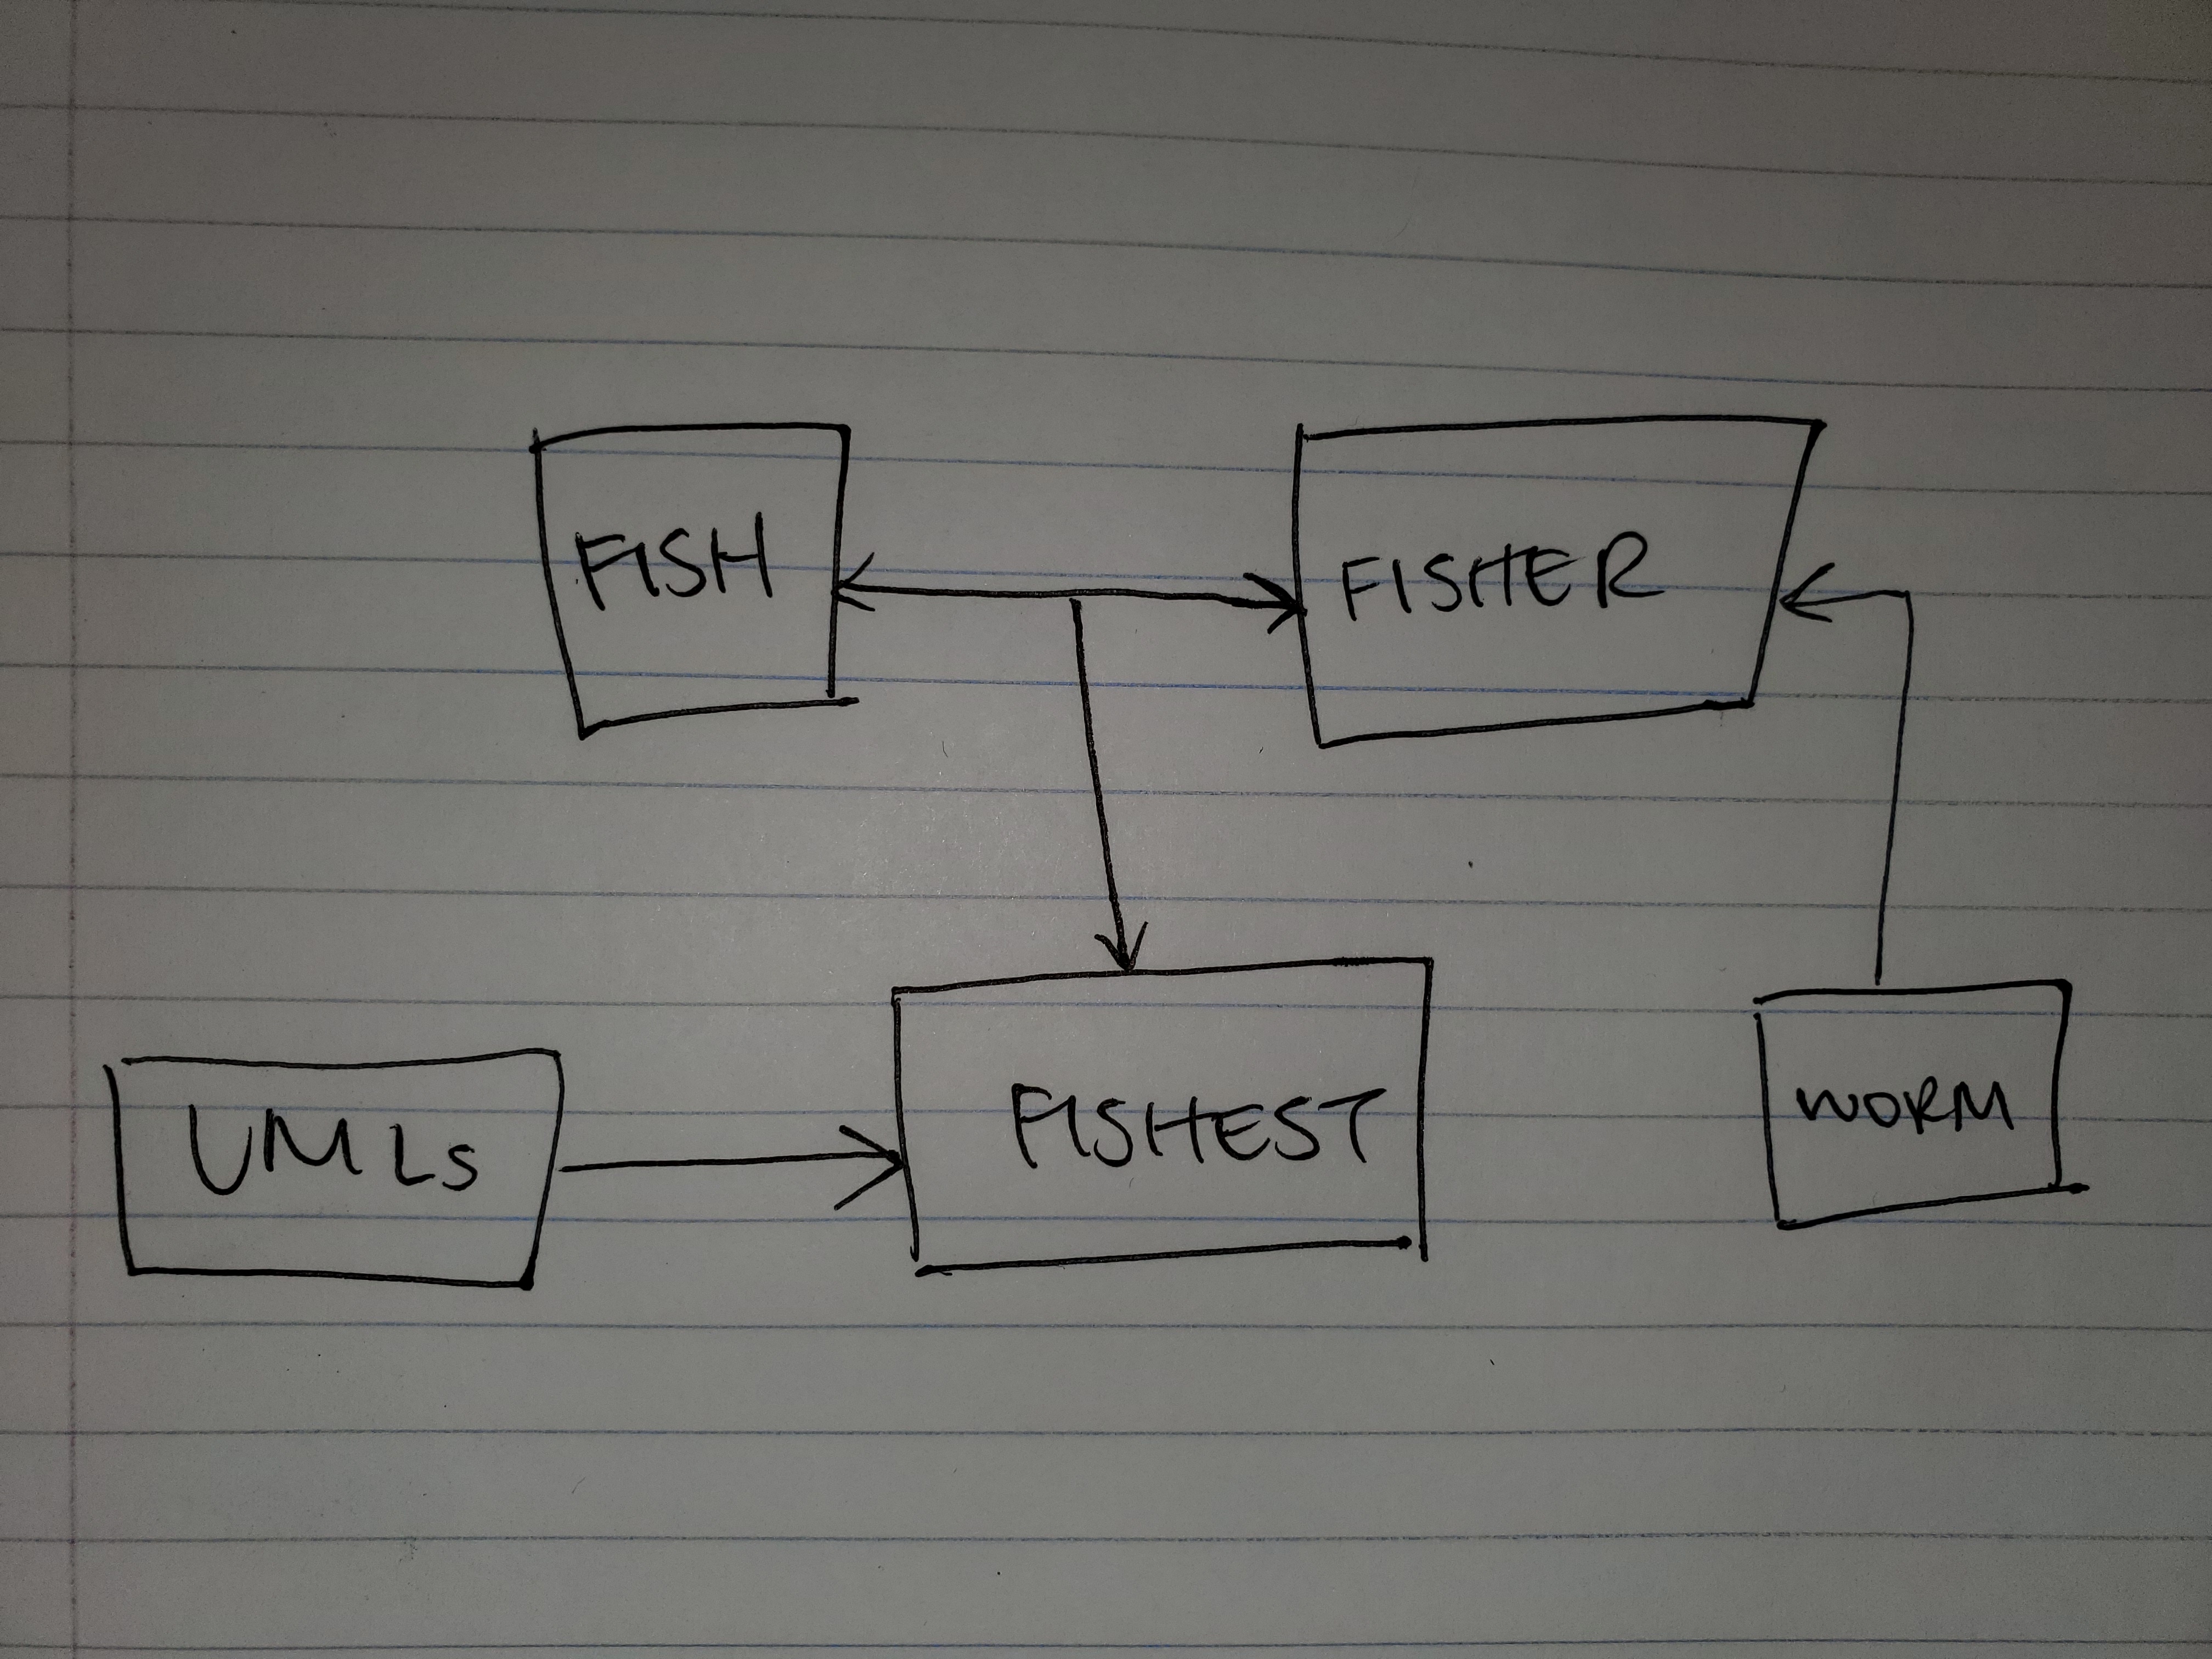 FISH
FISHER
UMLs
FISHEST
WORM